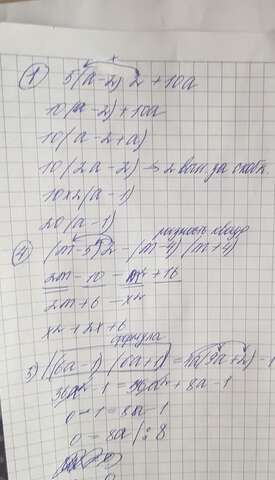 1) 5(a-2) 2 + 10a
10(a-2) + 10a
10(a-2+a)
10(2a-2) → 2 вын. за скобк.
10×2(a-1)
20(a-1)
разность квадр
4) (m-5)2 - (m-4)(m+4)
2m - 10 - m² + 16
2m + 6 - x²
x² + 2x + 6
формула
5) (6a-1)(6a+1) = 4a(9a+2) - 1
36a² - 1 = 36a² + 8a - 1
0 - 1 = 8a - 1
0 = 8a | : 8